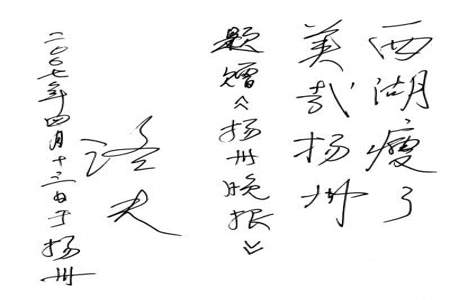 西湖瘦了
美哉扬州
题赠《扬州晚报》
洛夫
二〇〇七年四月十三日于扬州